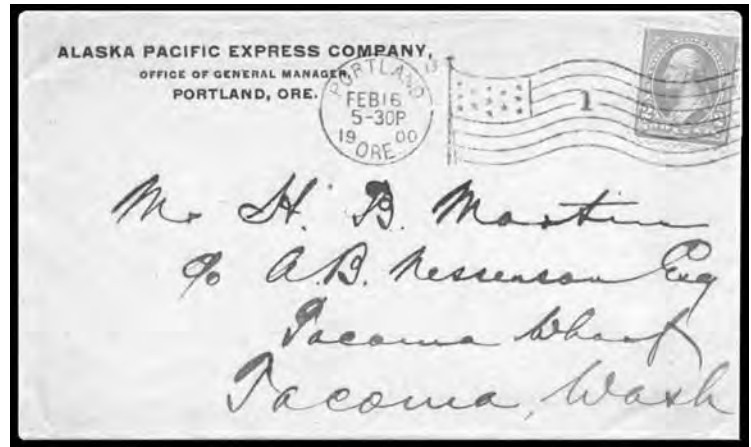 ALASKA PACIFIC EXPRESS COMPANY,
OFFICE OF GENERAL MANAGER,
PORTLAND, ORE.
PORTLAND
FEB 16
5-30P
19 00
ORE.
1
Mr H. B. Martin
c/o A. B. Messenson Esq
Tacoma Wharf
Tacoma, Wash